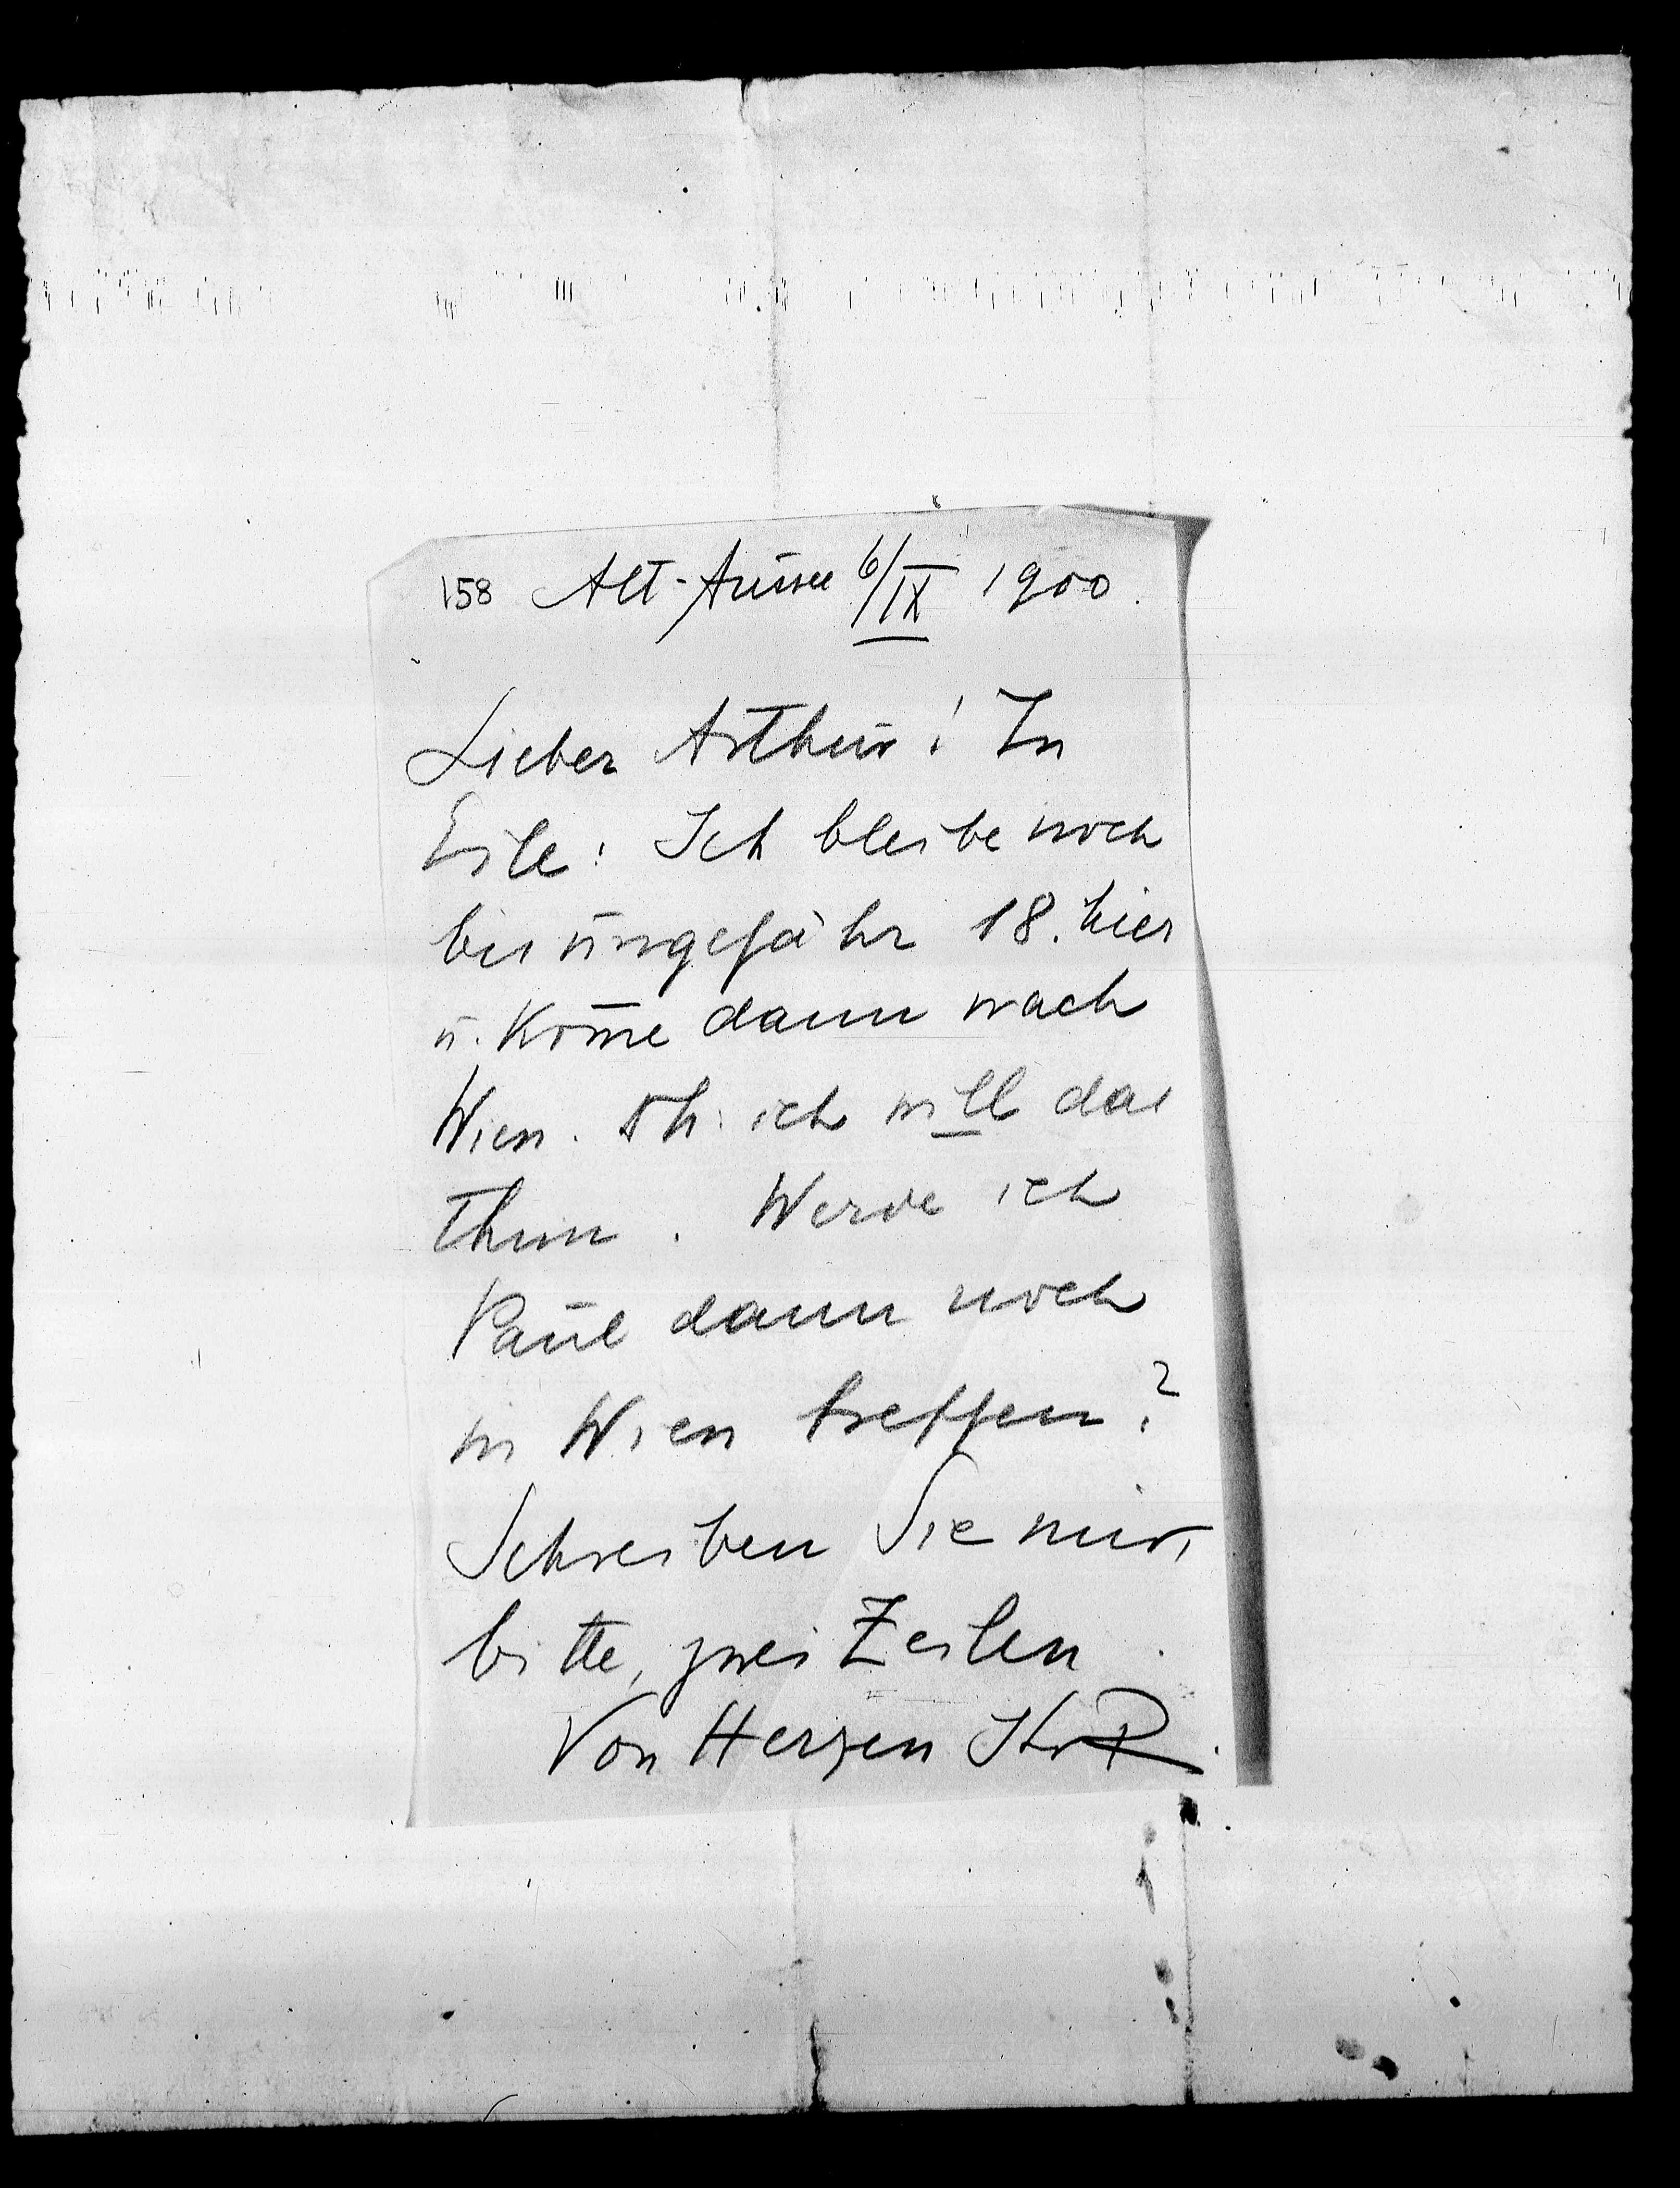 158 Alt-Aussee 6/IX 1900.
Lieber Arthur! In
Eile: Ich bleibe noch
bis ungefähr 18. hier
u. kom̄e dann nach
Wien. Dh: ich will das
thun. Werde ich
Paul dann noch
in Wien treffen?
Schreiben Sie mir,
bitte, zwei Zeilen.
Von Herzen Ihr R.